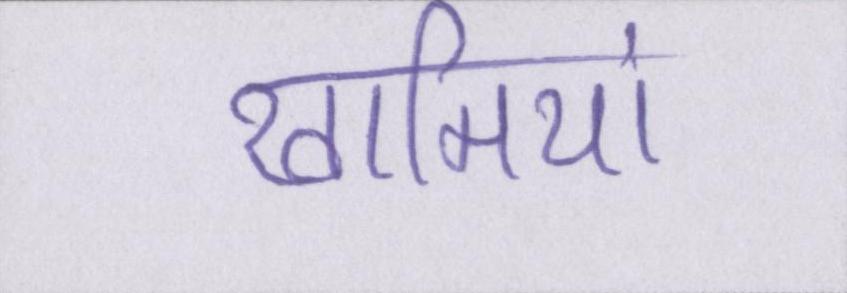 खामियां